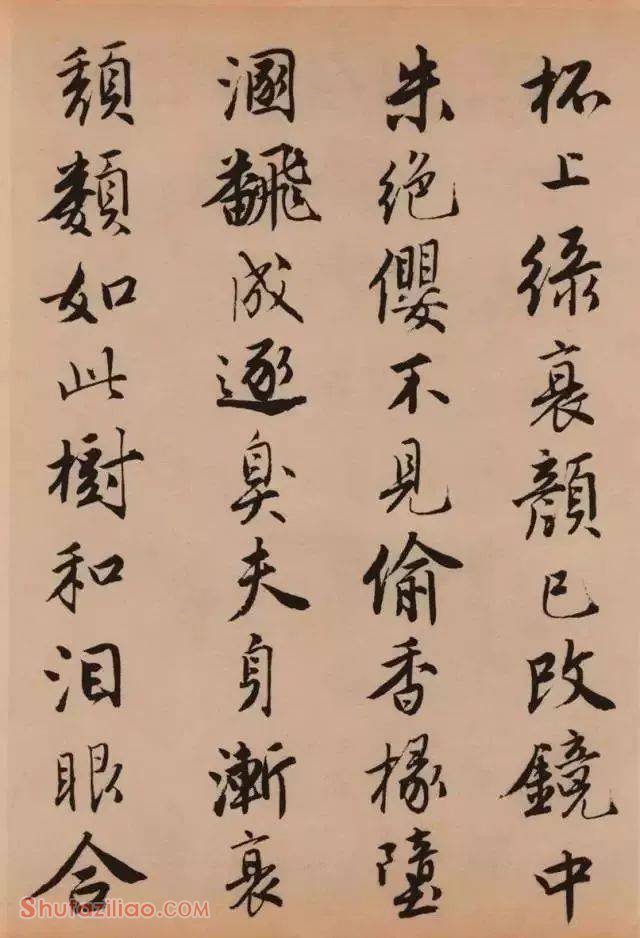 杯上綠衰顏已改鏡中
朱絕纓不見偷香椽墮
溷飜成逐臭夫身漸衰
頽類如此樹和泪眼合
Shufaziliao.COM